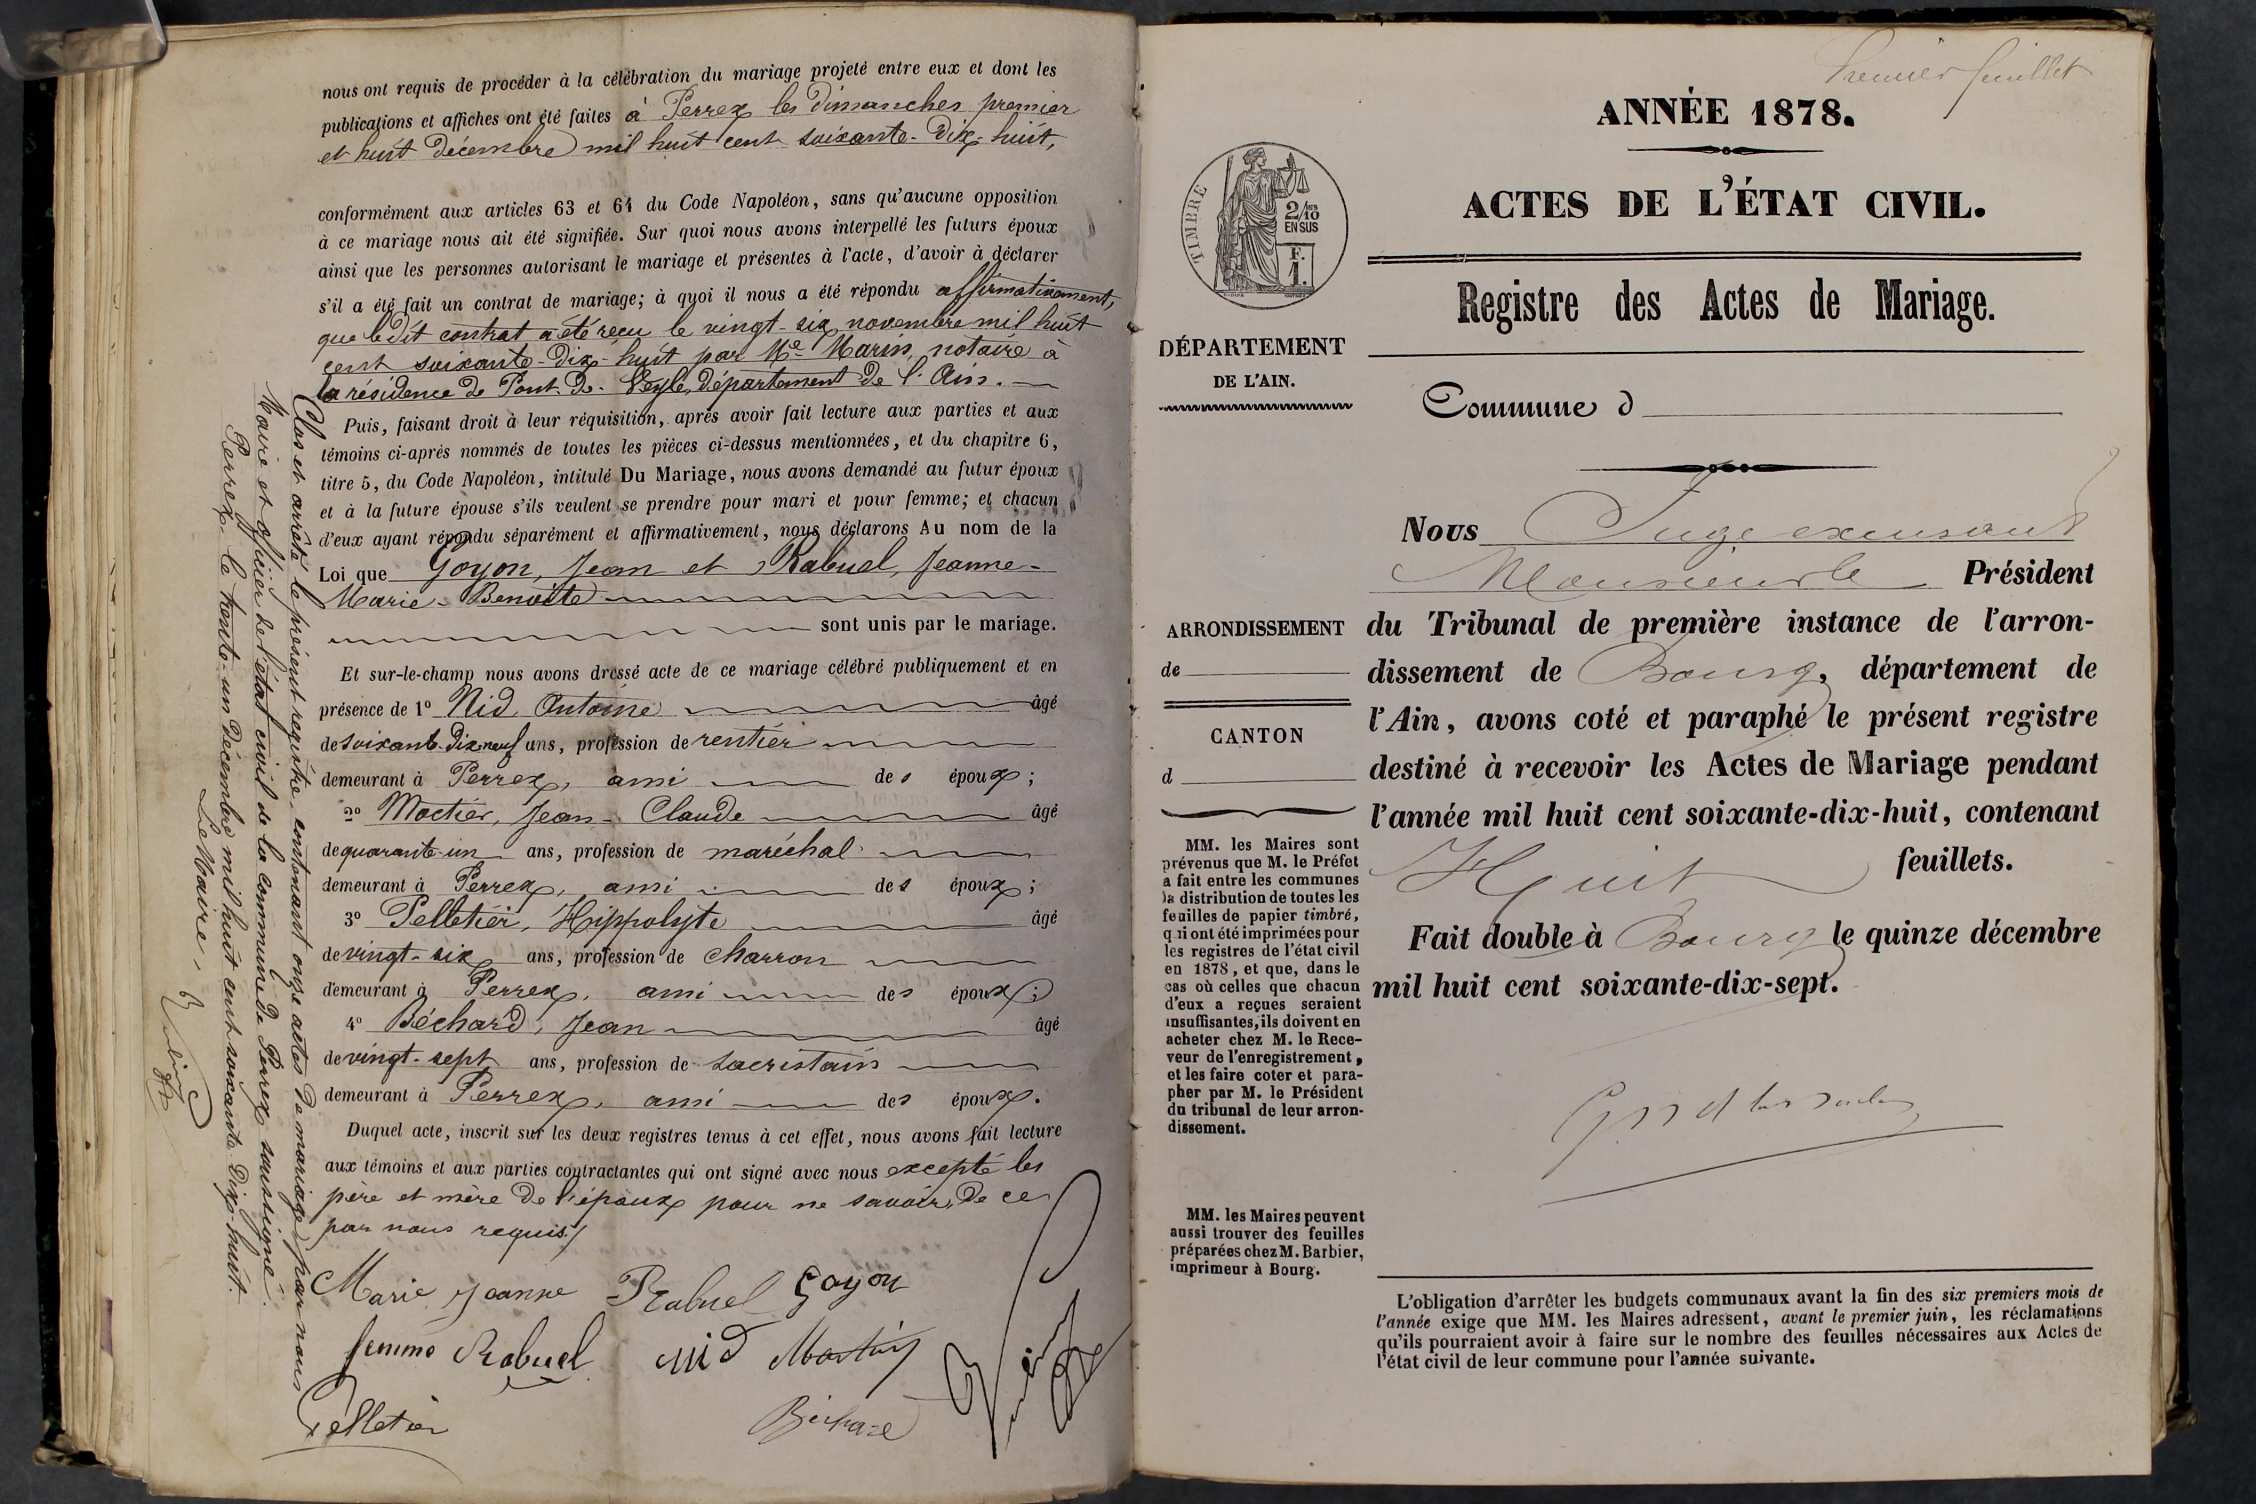 nous ont requis de procéder à la célébration du mariage projeté entre eux et dont les
publications et affiches ont été faites à Perrex les dimanches premier
et huit décembre mil huit cent soixante-dix-huit,
conformément aux articles 63 et 64 du Code Napoléon, sans qu'aucune opposition
à ce mariage nous ait été signifiée. Sur quoi nous avons interpellé les futurs époux
ainsi que les personnes autorisant le mariage et présentes à l'acte, d'avoir à déclarer
s'il a été fait un contrat de mariage; à quoi il nous a été répondu affirmativement,
que le dit contrat a été reçu le vingt-six novembre mil huit
cent soixante-dix-huit par Me Marin, notaire à
la résidence de Pont-de-Veyle, département de l'Ain.
Puis, faisant droit à leur réquisition, après avoir fait lecture aux parties et aux
témoins ci-après nommés de toutes les pièces ci-dessus mentionnées, et du chapitre 6,
titre 5, du Code Napoléon, intitulé Du Mariage, nous avons demandé au futur époux
et à la future épouse s'ils veulent se prendre pour mari et pour femme; et chacun
d'eux ayant répondu séparément et affirmativement, nous déclarons Au nom de la
Loi que Goyon, Jean et Rabuel, Jeanne-
Marie-Benoite
sont unis par le mariage.
Et sur-le-champ nous avons dressé acte de ce mariage célébré publiquement et en
présence de 1º Nid, Antoine âgé
de soixante-dix-neuf ans, profession de rentier
demeurant à Perrex, ami des époux;
2º Moctier, Jean-Claude âgé
de quarante-un ans, profession de maréchal
demeurant à Perrex, ami des époux;
3º Pelletier, Hippolyte âgé
de vingt-six ans, profession de charron
demeurant à Perrex, ami des époux;
4º Béchard, Jean âgé
de vingt-sept ans, profession de sacristain
demeurant à Perrex, ami des époux.
Duquel acte, inscrit sur les deux registres tenus à cet effet, nous avons fait lecture
aux témoins et aux parties contractantes qui ont signé avec nous excepté les
père et mère de l'époux pour ne savoir, de ce
par nous requis
Marie Jeanne Rabuel Goyon
femme Rabuel Nid
Pelletier Béchard
Clos et arrêté le présent registre, contenant onze actes de mariage, par nous
Maire et officier de l'état civil de la commune de Perrex soussigné.
Perrex, le trente-un décembre mil huit cent soixante-dix-huit.
Le Maire,
Premier feuillet
ANNÉE 1878.
ACTES DE L'ÉTAT CIVIL.
Registre des Actes de Mariage.
TIMBRE
2/10
EN SUS
F.
1.
DÉPARTEMENT
DE L'AIN.
Commune d
ARRONDISSEMENT
de
CANTON
d
MM. les Maires sont
prévenus que M. le Préfet
a fait entre les communes
la distribution de toutes les
feuilles de papier timbré,
qui ont été imprimées pour
les registres de l'état civil
en 1878, et que, dans le
cas où celles que chacun
d'eux a reçues seraient
insuffisantes, ils doivent en
acheter chez M. le Rece-
veur de l'enregistrement,
et les faire coter et para-
pher par M. le Président
du tribunal de leur arron-
dissement.
MM. les Maires peuvent
aussi trouver des feuilles
préparées chez M. Barbier,
imprimeur à Bourg.
Nous Juge excusant
Monsieur le Président
du Tribunal de première instance de l'arron-
dissement de Bourg, département de
l'Ain, avons coté et paraphé le présent registre
destiné à recevoir les Actes de Mariage pendant
l'année mil huit cent soixante-dix-huit, contenant
Huit feuillets.
Fait double à Bourg le quinze décembre
mil huit cent soixante-dix-sept.
L'obligation d'arrêter les budgets communaux avant la fin des six premiers mois de
l'année exige que MM. les Maires adressent, avant le premier juin, les réclamations
qu'ils pourraient avoir à faire sur le nombre des feuilles nécessaires aux Actes de
l'état civil de leur commune pour l'année suivante.